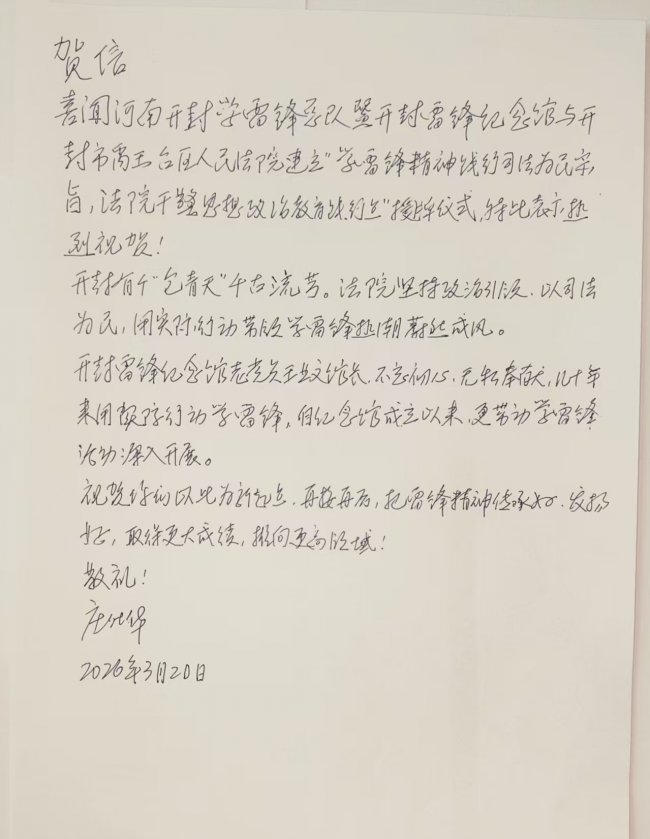 贺信
喜闻河南开封学雷锋总队暨开封雷锋纪念馆与开
封市禹王台区人民法院建立"学雷锋精神践行司法为民宗
旨，法院干警思想政治教育践行点"授牌仪式，特此表示热
烈祝贺！
开封有个"包青天"千古流芳。法院坚持政治引领，以司法
为民，用实际行动带领学雷锋热潮蔚然成风。
开封雷锋纪念馆老党员王立文馆长，不忘初心，无私奉献，几十年
来用实际行动学雷锋，自纪念馆成立以来，更带动学雷锋
活动深入开展。
祝贺你们以此为新起点，再接再厉，把雷锋精神传承好、发扬
好，取得更大成绩，推向更高领域！
敬礼！
庄仕华
2026年3月20日